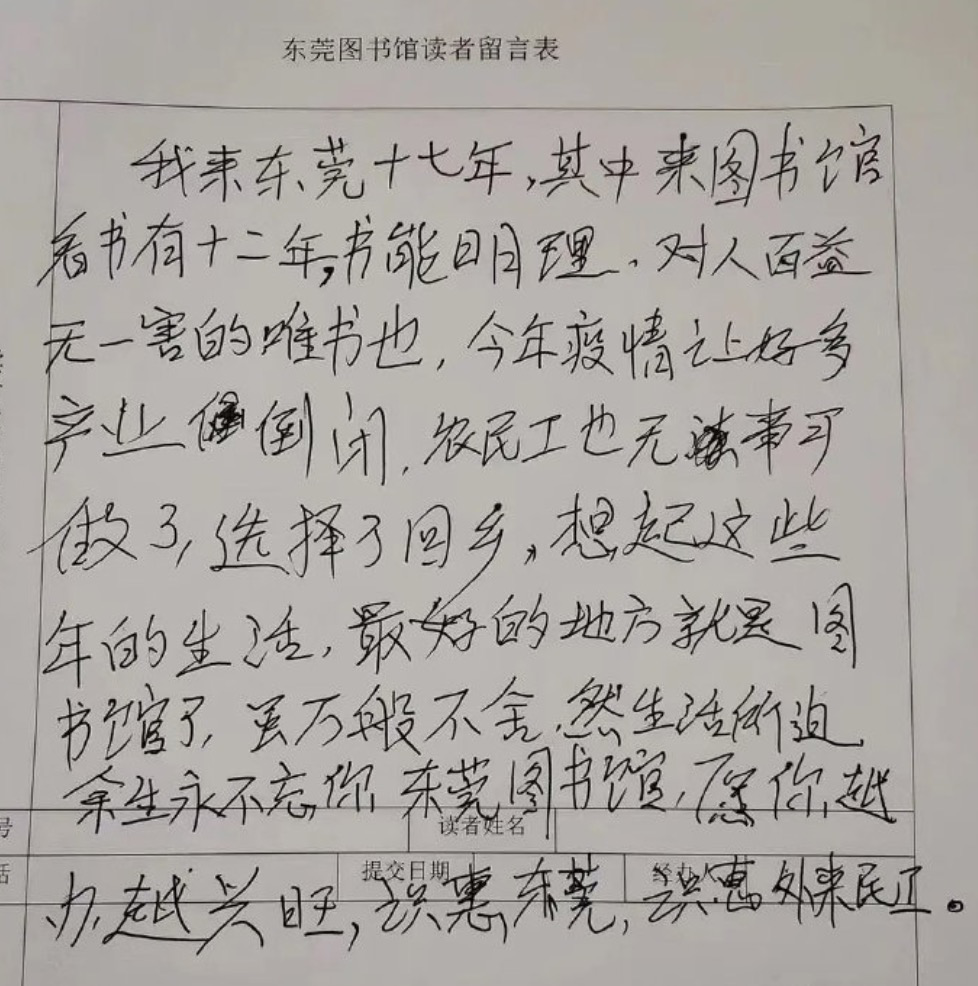 东莞图书馆读者留言表
我来东莞十七年,其中来图书馆
看书有十二年,书能明理、对人百益
无一害的唯书也,今年疫情让好多
产业倒闭,农民工也无事可
做了,选择了回乡,想起这些
年的生活,最好的地方就是图
书馆了,虽万般不舍,然生活所迫,
余生永不忘你,东莞图书馆,愿你越
号
读者姓名
话
提交日期
经办人
办越兴旺,识惠东莞,识惠外来民工。